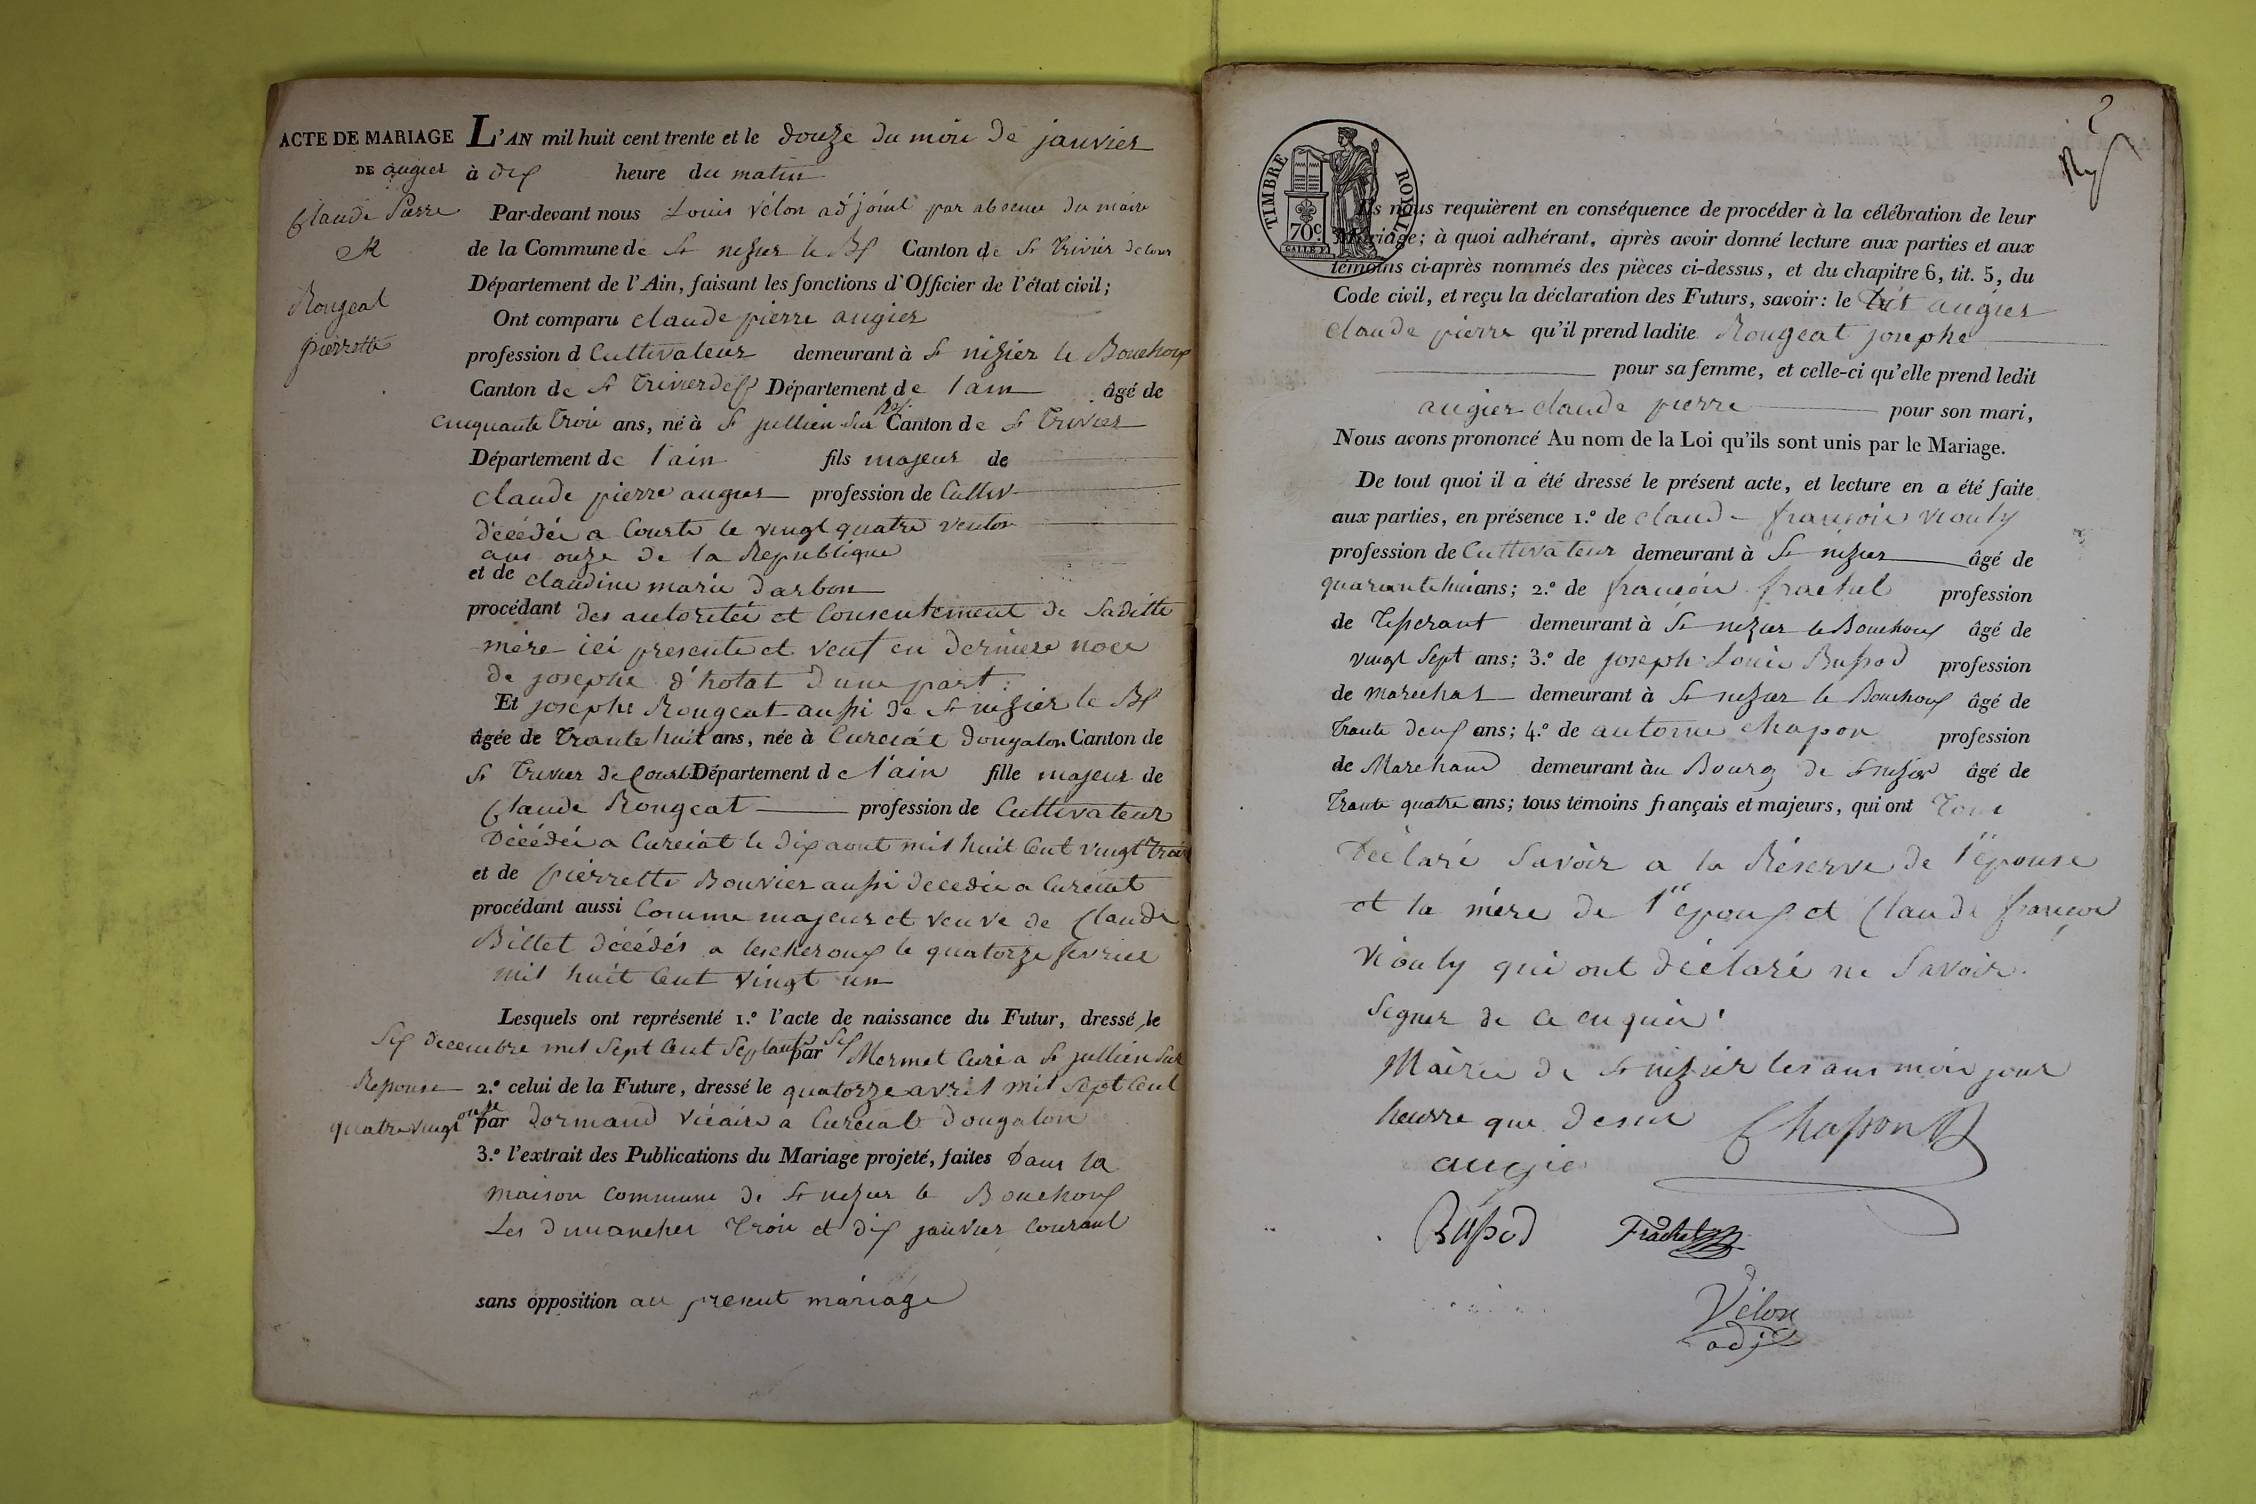 ACTE DE MARIAGE
DE augier
Claude Pierre
et
Rougeat
pierrette
L'AN mil huit cent trente et le douze du mois de janvier
à dix heure du matin
Par-devant nous Louis Vélon adjoint par absence du maire
de la Commune de St nizier le Bx Canton de St Trivier de cour
Département de l'Ain, faisant les fonctions d'Officier de l'état civil;
Ont comparu claude pierre augier
profession d Cultivateur demeurant à St nizier le Bouchoux
Canton de St Trivier de Département de l'ain âgé de
cinquante trois ans, né à St jullien sur Rss. Canton de St Trivier
Département de l'ain fils majeur de
claude pierre augier profession de Cultiv
décédée a Courte le vingt quatre ventos
ans onze de la Republique
et de claudine marie darbon
procédant des autoritée et Consentement de Saditte
mère ici presente et veuf en derniere noce
de josephe d'hotat d'une part:
Et josephe Rougeat aussi de St nizier le Bx
âgée de Trante huit ans, née à Curciat dongalon Canton de
St Trivier de Court Département d e l'ain fille majeur de
Claude Rougeat profession de Cultivateur
Décédée a Curciat le dix aout mil huit Cent vingt trois
et de pierrette Bouvier aussi decedée a Curciat
procédant aussi Comme majeur et veuve de Claude
Billet décédés a lescheroux le quatorze fevrier
mil huit Cent vingt un
Lesquels ont représenté 1.º l'acte de naissance du Futur, dressé le
Six decembre mil Sept Cent Septante Six par Mermet Curé a St jullien sur
Ressouse 2.º celui de la Future, dressé le quatorze avril mil Sept Cent
quatre vingt onze par dormand Vicaire a Curciat dongalon
3.º l'extrait des Publications du Mariage projeté, faites dans la
maison commune de St nizier le Bouchoux
Les dimanches trois et dix janvier courant
sans opposition au present mariage
2
TIMBRE ROYAL
70c.
Ils nous requièrent en conséquence de procéder à la célébration de leur
Mariage; à quoi adhérant, après avoir donné lecture aux parties et aux
témoins ci-après nommés des pièces ci-dessus, et du chapitre 6, tit. 5, du
Code civil, et reçu la déclaration des Futurs, savoir: le augier
claude pierre qu'il prend ladite Rougeat josephe
pour sa femme, et celle-ci qu'elle prend ledit
augier claude pierre pour son mari,
Nous avons prononcé Au nom de la Loi qu'ils sont unis par le Mariage.
De tout quoi il a été dressé le présent acte, et lecture en a été faite
aux parties, en présence 1.º de claude françois viouly
profession de Cultivateur demeurant à St nizier âgé de
quarante huit ans; 2.º de françois frachet profession
de Tisserant demeurant à St nizier le Bouchoux âgé de
vingt Sept ans; 3.º de joseph Louis Bussod profession
de marechal demeurant à St nizier le Bouchoux âgé de
Trante deux ans; 4.º de antoine chapon profession
de Marchand demeurant àu Bourg de St nizier âgé de
Trante quatre ans; tous témoins français et majeurs, qui ont Tous
Déclaré Savoir a la Réserve de l'épouse
et la mère de l'epoux et Claude françois
viouly qui ont déclaré ne Savoir
Signer de ce enquis
Mairie de St nizier les ans mois jour
heurre que desus Chapon
augier
Bussod Frachet
Vélon
adj